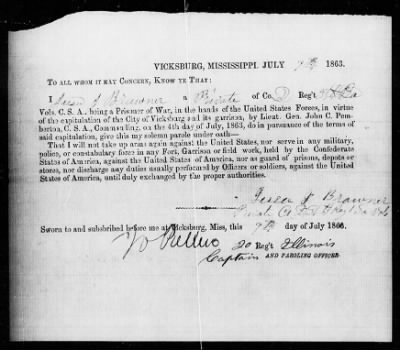 VICKSBURG, MISSISSIPPI. JULY 9th 1863.
TO ALL WHOM IT MAY CONCERN, KNOW YE THAT:
I J Brawner a Private of Co. D Reg't La
Vols. C. S. A., being a Prisoner of War, in the hands of the United States Forces, in virtue
of the capitulation of the City of Vicksburg and its garrison, by Lieut. Gen. John C. Pem-
berton, C. S. A., Commanding, on the 4th day of July, 1863, do in pursuance of the terms
of said capitulation, give this my solemn parole under oath—
That I will not take up arms again against the United States, nor serve in any military,
police, or constabulary force in any Fort, Garrison or field work, held by the Confederate
States of America, against the United States of America, nor as guard of prisons, depots or
stores, nor discharge any duties usually performed by Officers or soldiers, against the United
States of America, until duly exchanged by the proper authorities.
J Brawner
Private Co D
Sworn to and subscribed before me at Vicksburg, Miss, this 9th day of July 1863.
20 Reg't Illinois
Captain AND PAROLING OFFICER